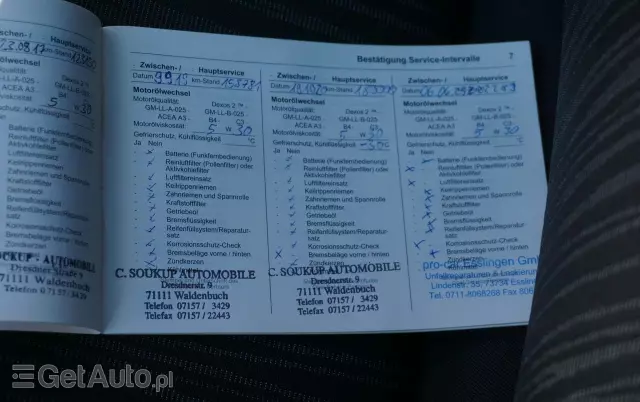 Bestätigung Service-Intervalle 7
3.08.17
Hauptservice
km-Stand
Motorölwechsel
Motorölqualität
GM-LL-A-025
Dexos 2™
GM-LL-B-025
ACEA A3
B4
5 W 30
Gefrierschutz, Kühlflüssigkeit
OUKUP - AUTOMOBILE
Dresdnerstr. 9
71111 Waldenbuch
Telefon 07157 / 3429
Zwischen-/ Hauptservice
Datum 9.9.19 km-Stand
Motorölwechsel
Motorölqualität Dexos 2™
GM-LL-A-025 GM-LL-B-025
ACEA A3 B4
Motorölviskosität 5 W 30
Gefrierschutz, Kühlflüssigkeit °C
Ja Nein
Batterie (Funkfernbedienung)
Reinluftfilter (Pollenfilter) oder
Aktivkohlefilter
Luftfiltereinsatz
Keilrippenriemen
Zahnriemen und Spannrolle
Kraftstofffilter
Getriebeöl
Bremsflüssigkeit
Reifenfüllsystem/Reparatur-
satz
Korrosionsschutz-Check
Bremsbeläge vorne / hinten
Zündkerzen
C. SOUKUP AUTOMOBILE
Dresdnerstr. 9
71111 Waldenbuch
Telefon 07157 / 3429
Telefax 07157 / 22443
Zwischen-/ Hauptservice
Datum km-Stand
Motorölwechsel
Motorölqualität Dexos 2™
GM-LL-A-025 GM-LL-B-025
ACEA A3 B4
Motorölviskosität 5 W 30
Gefrierschutz, Kühlflüssigkeit
Ja Nein
Batterie (Funkfernbedienung)
Reinluftfilter (Pollenfilter) oder
Aktivkohlefilter
Luftfiltereinsatz
Keilrippenriemen
Zahnriemen und Spannrolle
Kraftstofffilter
Getriebeöl
Bremsflüssigkeit
Reifenfüllsystem/Reparatur-
satz
Korrosionsschutz-Check
Bremsbeläge vorne / hinten
Zündkerzen
C. SOUKUP AUTOMOBILE
Dresdnerstr. 9
71111 Waldenbuch
Telefon 07157 / 3429
Telefax 07157 / 22443
Zwischen-/ Hauptservice
Datum
Motorölwechsel
Motorölqualität Dexos 2™
GM-LL-A-025 GM-LL-B-025
ACEA A3 B4
Motorölviskosität 5 W 30
Gefrierschutz, Kühlflüssigkeit °C
Ja Nein
Batterie (Funkfernbedienung)
Reinluftfilter (Pollenfilter) oder
Aktivkohlefilter
Luftfiltereinsatz
Keilrippenriemen
Zahnriemen und Spannrolle
Kraftstofffilter
Getriebeöl
Bremsflüssigkeit
Reifenfüllsystem/Reparatur-
satz
Korrosionsschutz-Check
Bremsbeläge vorne / hinten
Zündkerzen
pro-car Esslingen GmbH
Unfallreparaturen & Lackierung
Lindenstr. 55, 73734 Esslingen
Tel. 0711-8068268 Fax
GetAuto.pl